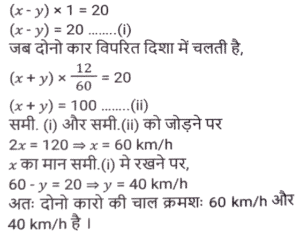 (x - y) × 1 = 20
(x - y) = 20 ........(i)
जब दोनो कार विपरित दिशा में चलती है,
(x + y) × 12/60 = 20
(x + y) = 100 ........(ii)
समी. (i) और समी.(ii) को जोड़ने पर
2x = 120 ⇒ x = 60 km/h
x का मान समी.(i) मे रखने पर,
60 - y = 20 ⇒ y = 40 km/h
अतः दोनो कारो की चाल क्रमशः 60 km/h और
40 km/h है ।